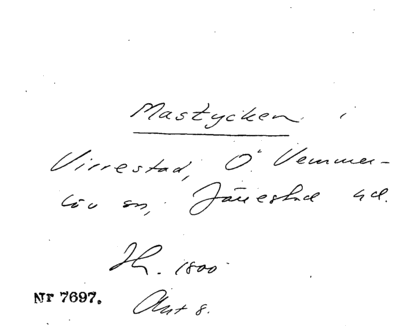 Mastycken i
Virrestad, Ö Vemmer-
löv sn, Järrestad hd.
Jh. 1800
Nr 7697. Ant 8.